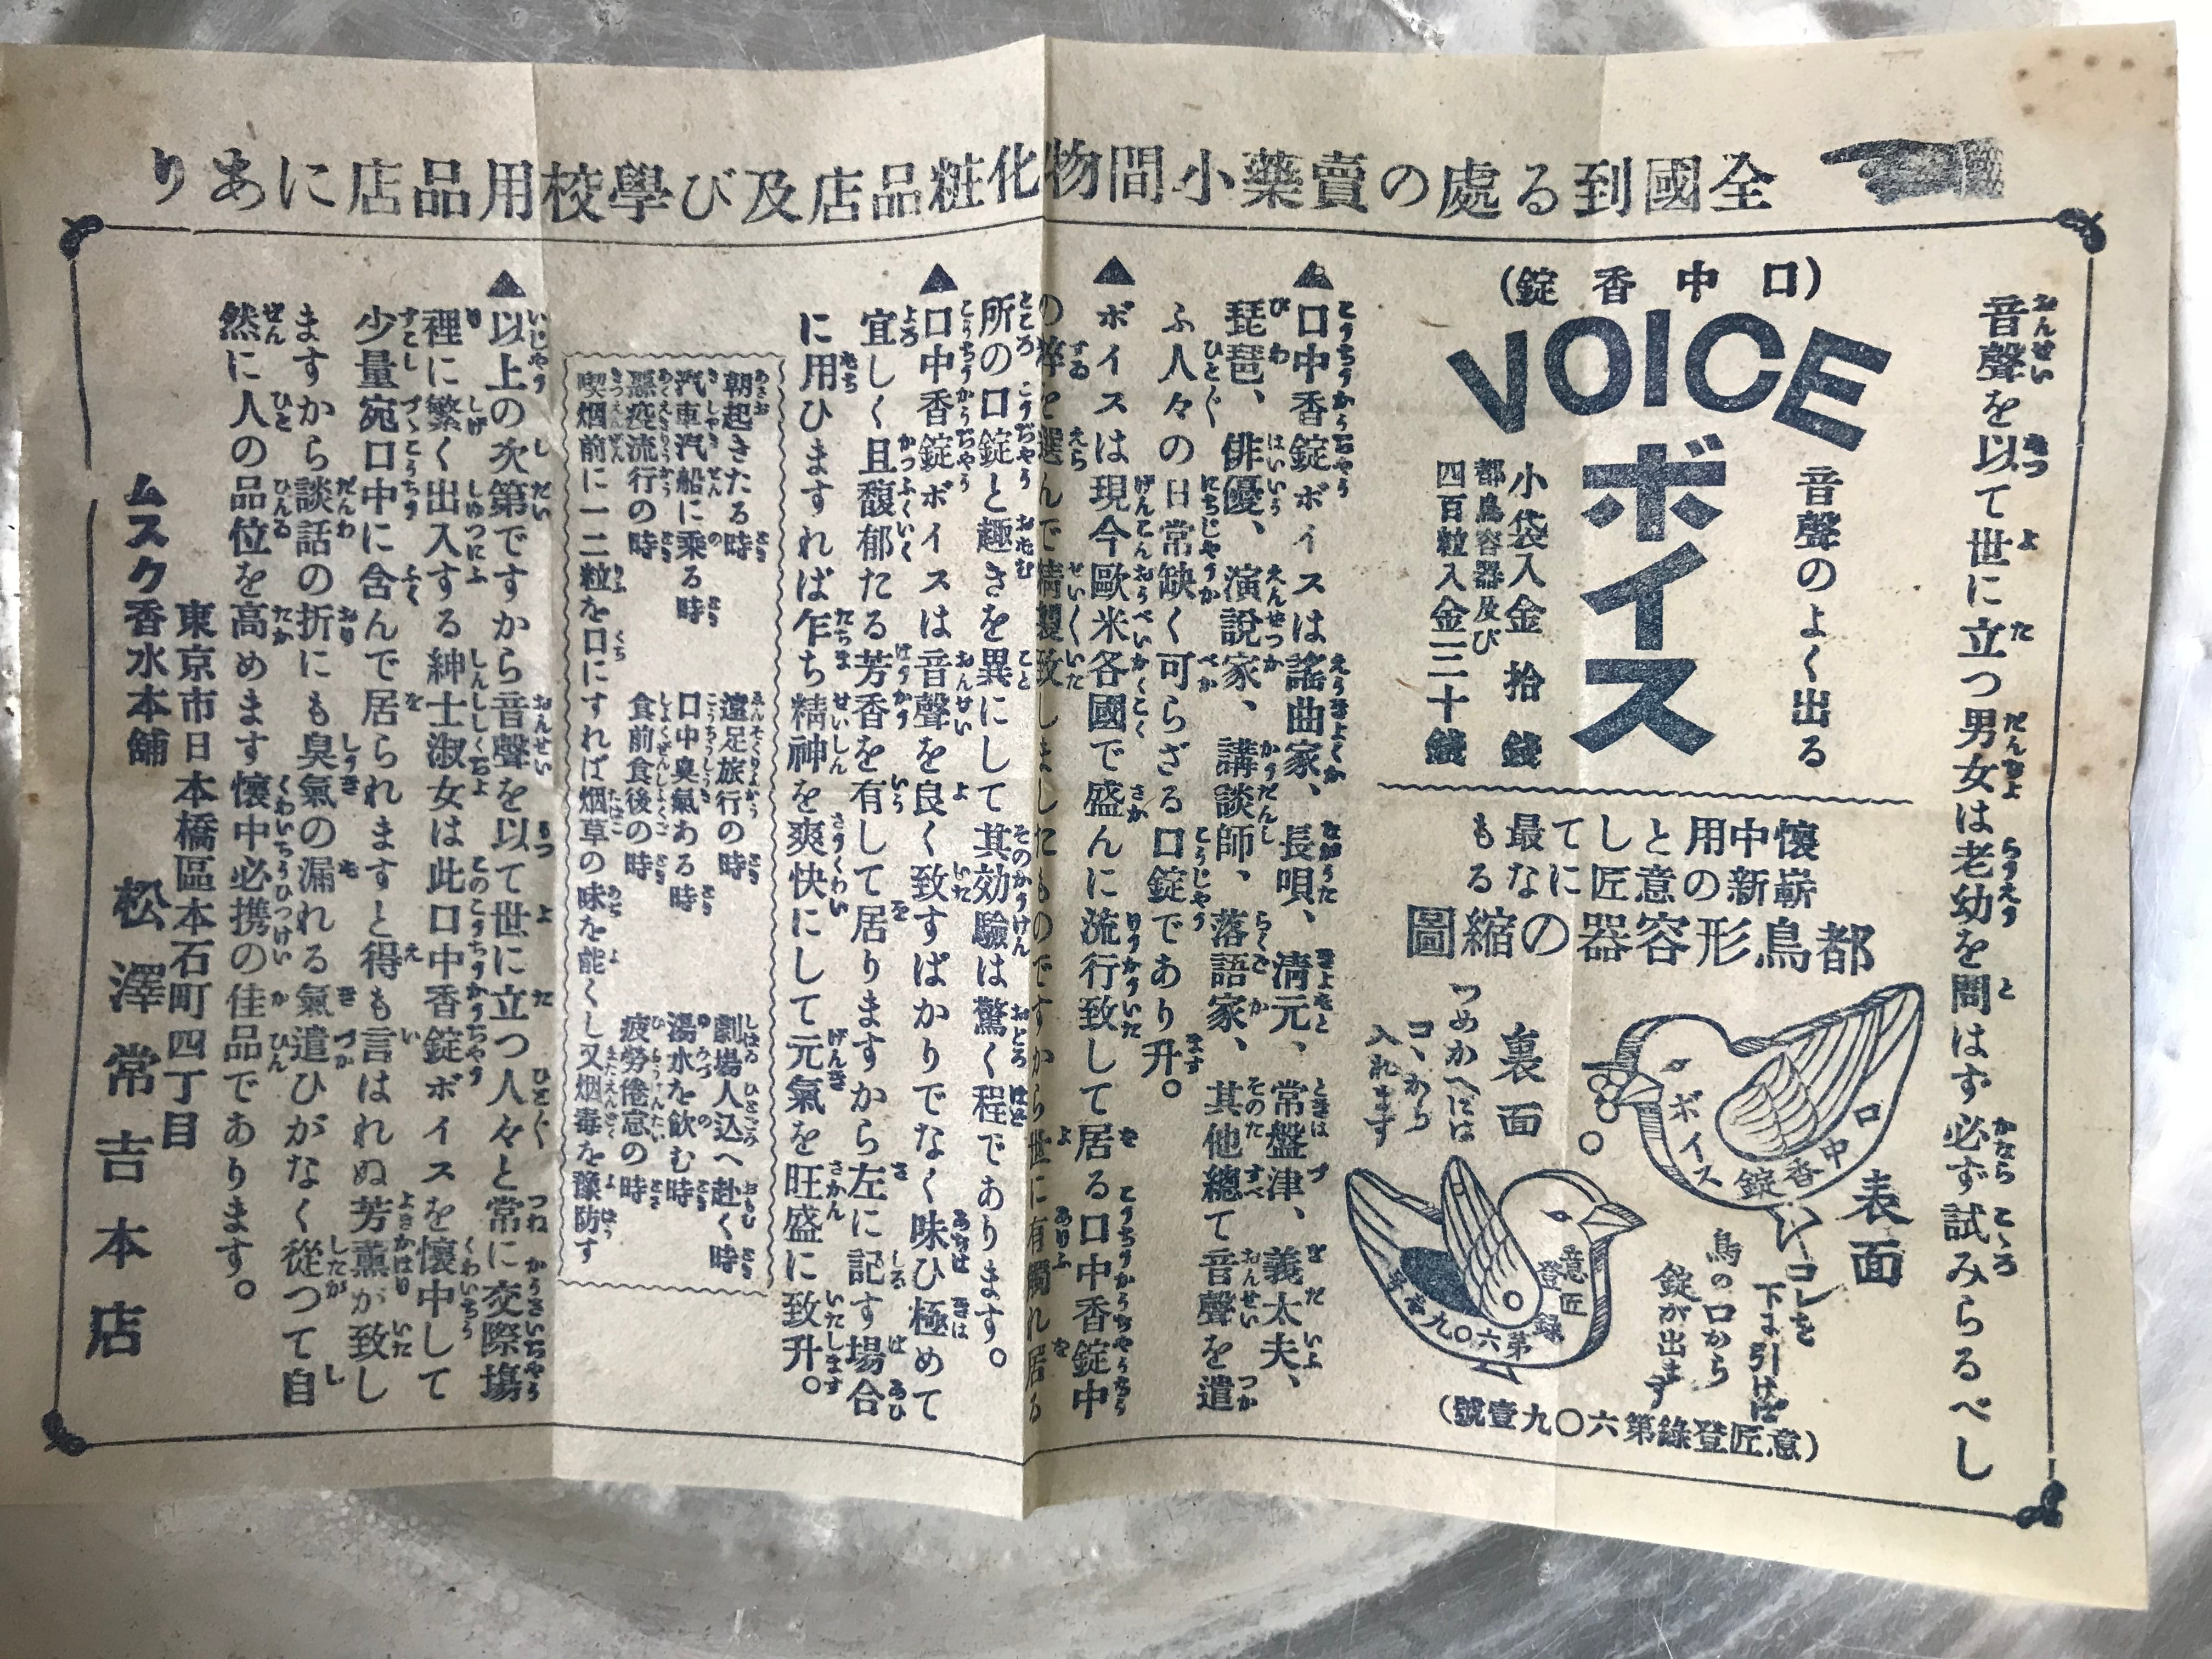 全國到る處の賣藥小間物化粧品店及び學校用品店にあり
音聲を以て世に立つ男女は老幼を問はず必ず試みらるべし
(口中香錠)
VOICE
ボイス
音聲のよく出る
小袋入金拾錢
都鳥容器及び
四百粒入金三十錢
懷中用として最も
嶄新の意匠になる
都鳥形容器の縮圖
表面
口中香錠
ボイス
コレを
下に引けば
鳥の口から
錠が出ます
裏面
つめかへには
コヽから
入れます
意匠
登録
第六〇九壹号
(意匠登錄第六〇九壹號)
▲口中香錠ボイスは謠曲家、長唄、淸元、常盤津、義太夫、
琵琶、俳優、演說家、講談師、落語家、其他總て音聲を遣
ふ人々の日常缺く可らざる口錠であり升。
▲ボイスは現今歐米各國で盛んに流行致して居る口中香錠中
の粹を選んで精製致しましたものですから世に有觸れ居る
所の口錠と趣きを異にして其効驗は驚く程であります。
▲口中香錠ボイスは音聲を良く致すばかりでなく味ひ極めて
宜しく且馥郁たる芳香を有して居りますから左に記す場合
に用ひますれば乍ち精神を爽快にして元氣を旺盛に致升。
朝起きたる時
遠足旅行の時
劇場人込へ赴く時
汽車汽船に乘る時
口中臭氣ある時
湯水を飮む時
惡疫流行の時
食前食後の時
疲勞倦怠の時
喫烟前に一二粒を口にすれば烟草の味を能くし又烟毒を豫防す
▲以上の次第ですから音聲を以て世に立つ人々と常に交際場
裡に繁く出入する紳士淑女は此口中香錠ボイスを懷中して
少量宛口中に含んで居られますと得も言はれぬ芳薰が致し
ますから談話の折にも臭氣の漏れる氣遣ひがなく從つて自
然に人の品位を高めます懷中必携の佳品であります。
東京市日本橋區本石町四丁目
ムスク香水本舖
松澤常吉本店